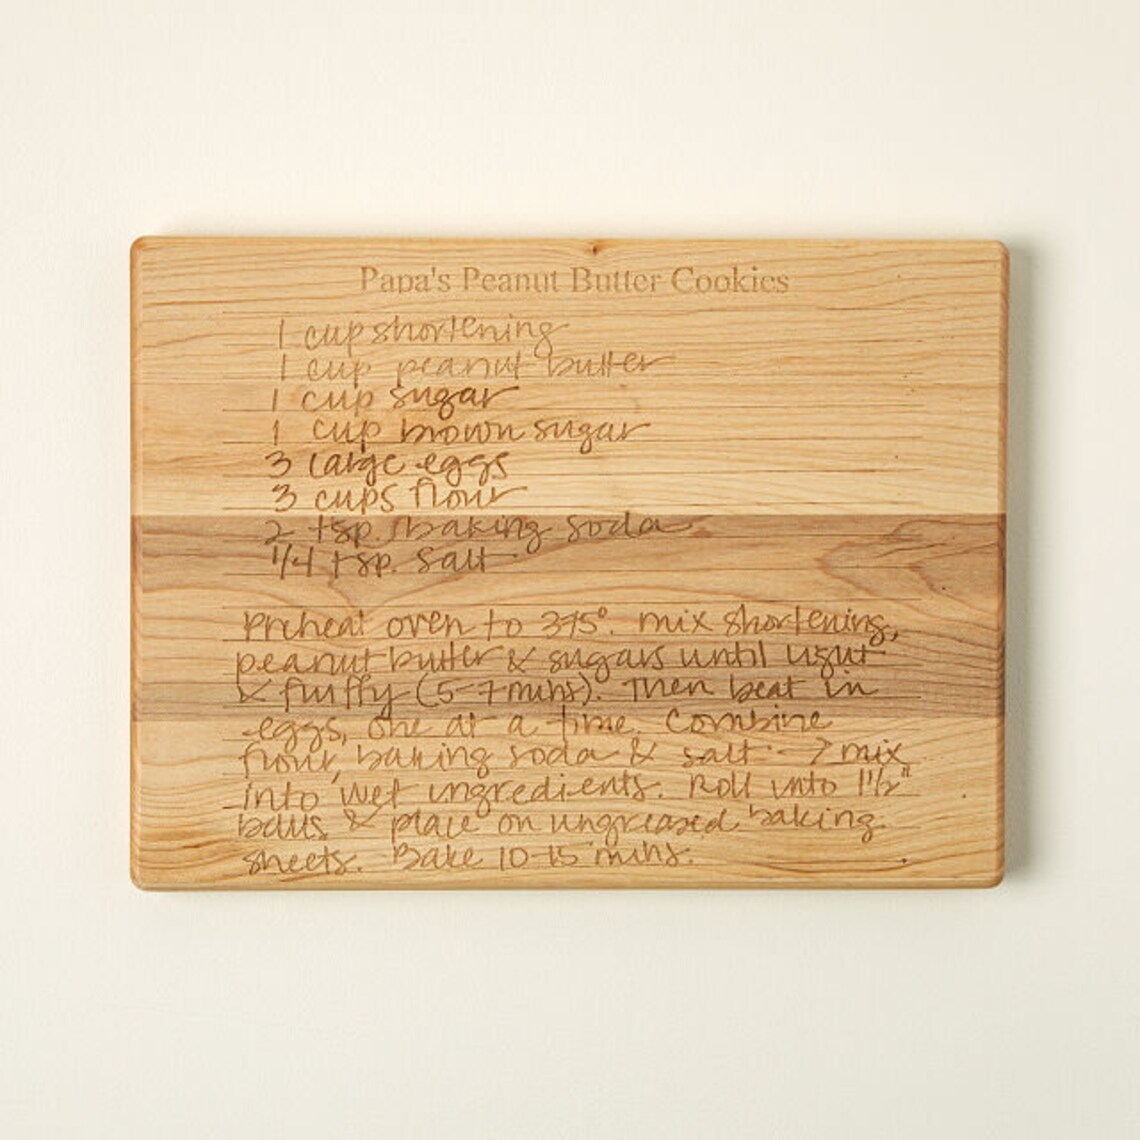 Papa's Peanut Butter Cookies
1 cup shortening
1 cup peanut butter
1 cup sugar
1 cup brown sugar
3 large eggs
3 cups flour
2 tsp. baking soda
1/4 tsp. salt
Preheat oven to 375°. mix shortening,
peanut butter & sugars until light
& fluffy (5-7 mins). Then beat in
eggs, one at a time. Combine
flour, baking soda & salt → mix
into wet ingredients. Roll into 1 1/2"
balls & place on ungreased baking
sheets. Bake 10-15 mins.